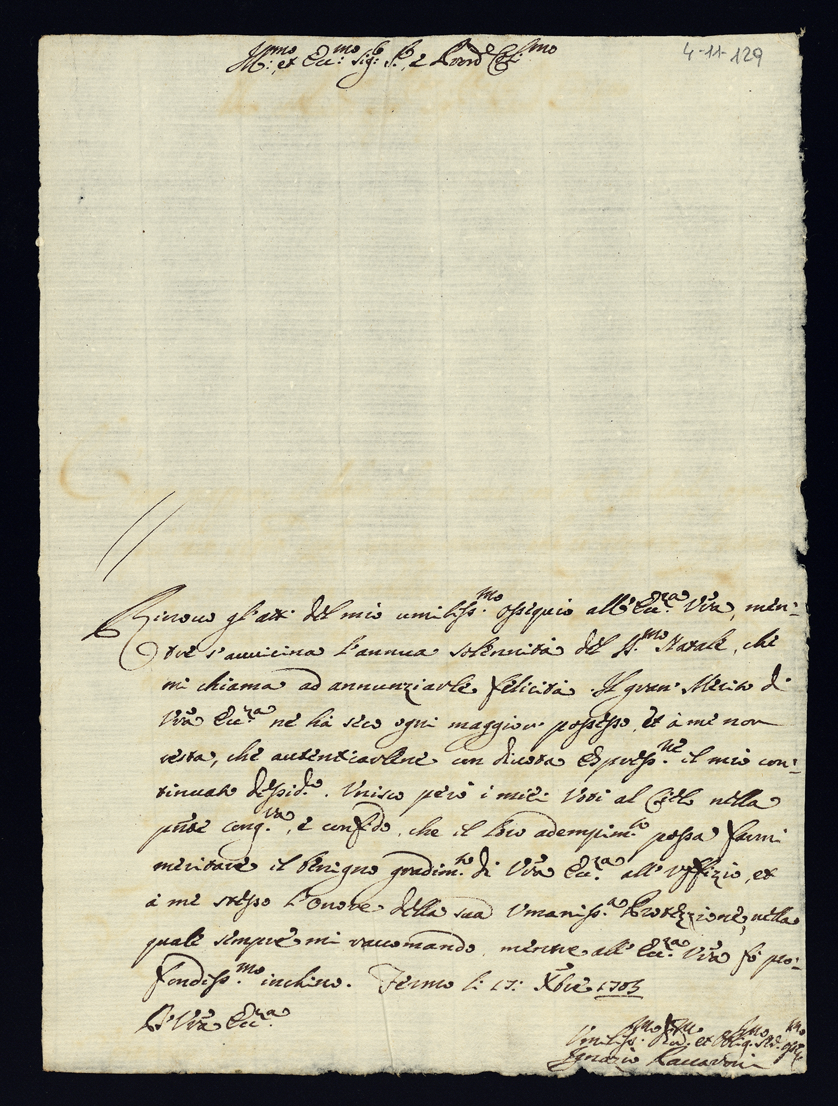 Ill:mo et Ecc:mo Sig: S:, e Prone Col:mo
4-11-129
Rinovo gl'atti del mio umiliss:mo ossequio all'Ecc:za Vra, men:
tre s'avvicina l'annua solennità del S:mo Natale, che
mi chiama ad annunziarle felicità. Il gran Merito di
Vra Ecc:za ne hà seco ogni maggior possesso, et à me non
resta, che autenticarlene con divota espress:ne il mio con:
tinuato desid:o. Unisco però i miei Voti al Cielo nella
pnte cong:ra, e confido, che il loro adempim:to possa farmi
meritare il benigno gradim:to di Vra Ecc:za all'Uffizio, et
à me stesso l'onore della sua Umaniss:a Protezzione, nella
quale sempre mi raccomando, mentre all'Ecc:za Vra fò pro:
fondiss:mo inchino. Fermo li 17: Xbre 1705
D'Vra Ecc:za
Umiliss:mo et Oblig:mo
Ignazio